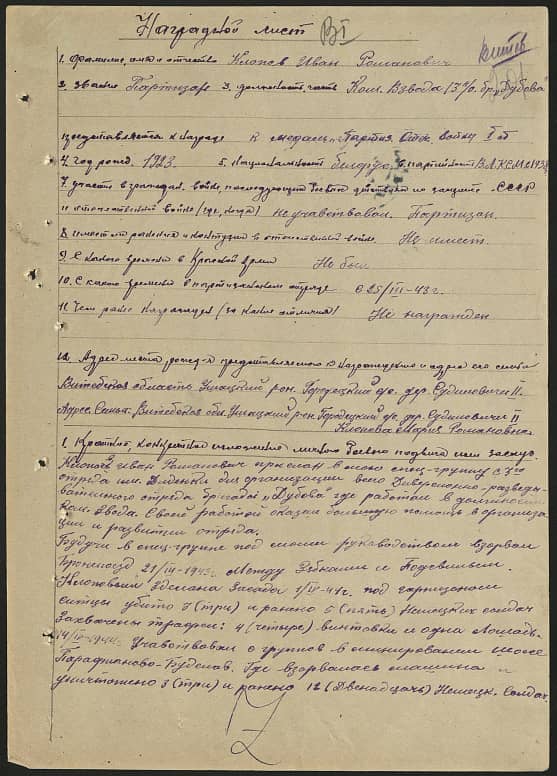 Наградной лист
1. Фамилия, имя и отчество Клопов Иван Романович
2. звание Партизан 3. должность, часть Ком. Взвода 13 бр. Дубова
представляется к награде к медаль „Партиз. Отеч. войны" I ст
4. год рожд. 1923. 5. национальность белорус 6. партийность ВЛКСМ с
7. участие в граждан. войне, последующих боевых действиях по защите СССР
и отечественной войне (где, когда) не учавствовал. Партизан.
8. имеет ли ранения и контузии в отечественной войне. Не имеет.
9. С какого времени в Красной Армии Не был
10. С какого времени в партизанском отряде с 25/III-43 г.
11. Чем ранее награжден (за какие отличия) Не награжден
12. Адрес места рожд-я представляемого к награждению и адрес его семьи
Витебская область Ушацкий рон. Городецкий дер. Судиловичи II.
Адрес. Семьи: Витебская обл. Ушацкий рон. Городецкий дер. Судиловичи II
Клопова Мария Романовна.
1. Краткое, конкретное изложение личного боевого подвига или заслуг.
Клопов Иван Романович прислан в мою спец-группу с 3го
отряда им. для организации Диверсионно-разведы-
вательного отряда бригады „Дубова" где работал в должности
ком. Взвода. Своей работой оказал большую помощь в организа-
ции и развитии отряда.
Будучи в спец-группе под моим руководством взорвал
Бронепоезд 21/III-1943 г. Между Зябками и Подсвильем.
Клоповым Зделана Засада 7/IV-44 г. под гарнизоном
убито 3 (три) и ранено 5 (пять) Немецких солдат
Захвачены трофеи: 4 (четыре) винтовки и одна Лошадь.
14/III-1944 г. Учавствовал с группой в минировании шоссе
Парафьяново-Будслав. Где взорвалась машина и
уничтожено 3 (три) и ранено 12 (Двенадцать) Немецк. Солдат.